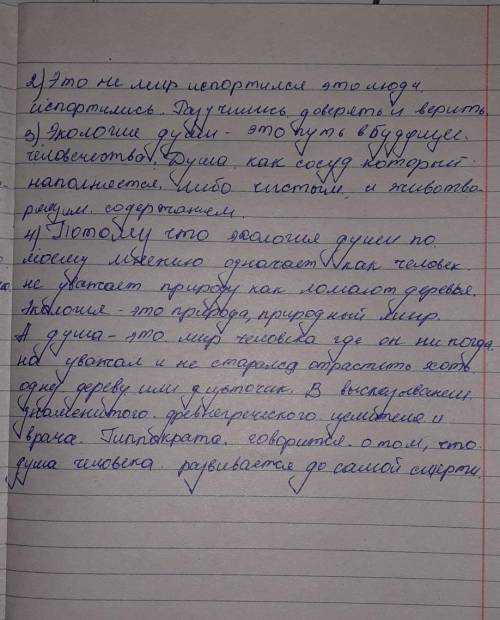 2) Это не мир испортился это люди
испортились. Разучились доверять и верить.
3) Экология души - это путь в будущее.
человечества. Душа как сосуд который
наполняется либо чистым и животво-
рящим содержанием.
4) Потому что экология души по
моему мнению означает как человек
не уважает природу как ломают деревья.
Экология - это природа, природный мир.
А душа - это мир человека где он ни когда
на уважал и не старался отрастить хоть
одну дереву или цвяточик. В высказывании
знаменитого древнегреческого целителя и
врача Гиппократа говорится о том, что
душа человека развивается до самой смерти.